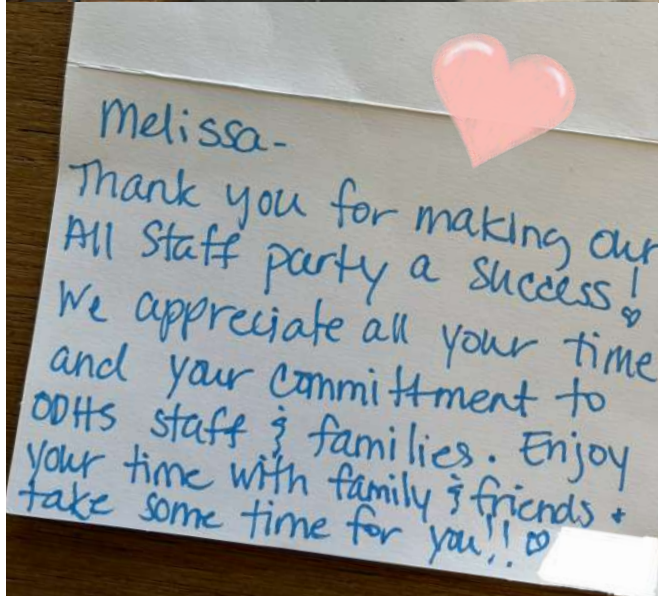 Melissa-
Thank you for making our
All Staff party a success!
We appreciate all your time
and your committment to
ODHS staff & families. Enjoy
your time with family & friends +
take some time for you!!